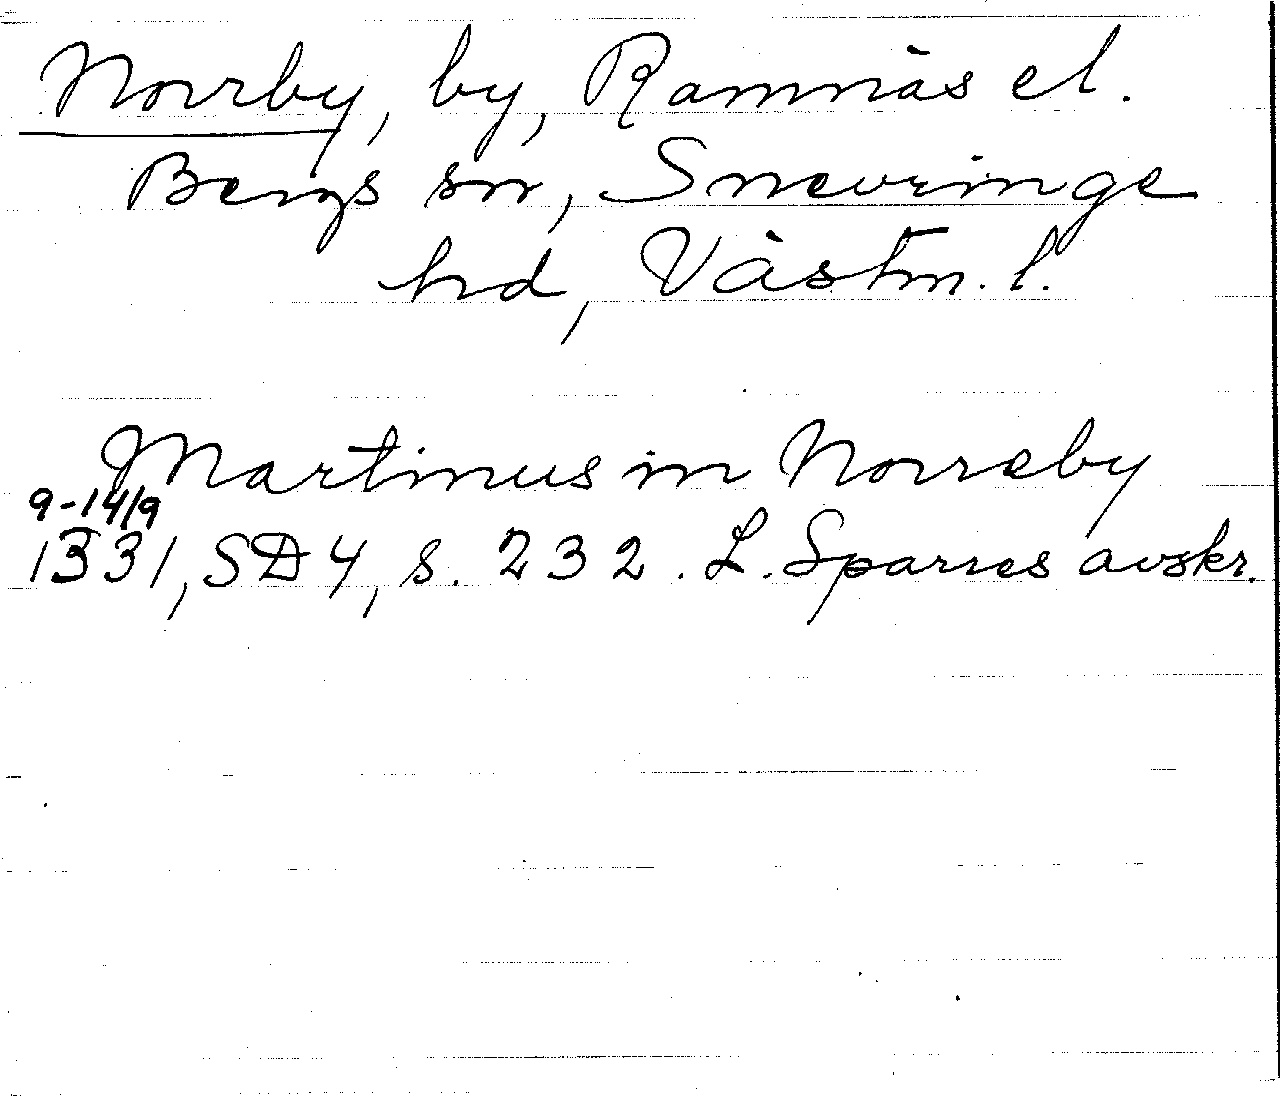 Norrby, by, Ramnäs el.
Bergs sn, Snevringe
hd, Västm. l.
Martinus in Norreby
9-14/9
1331, SD 4, s. 232. L. Sparres avskr.